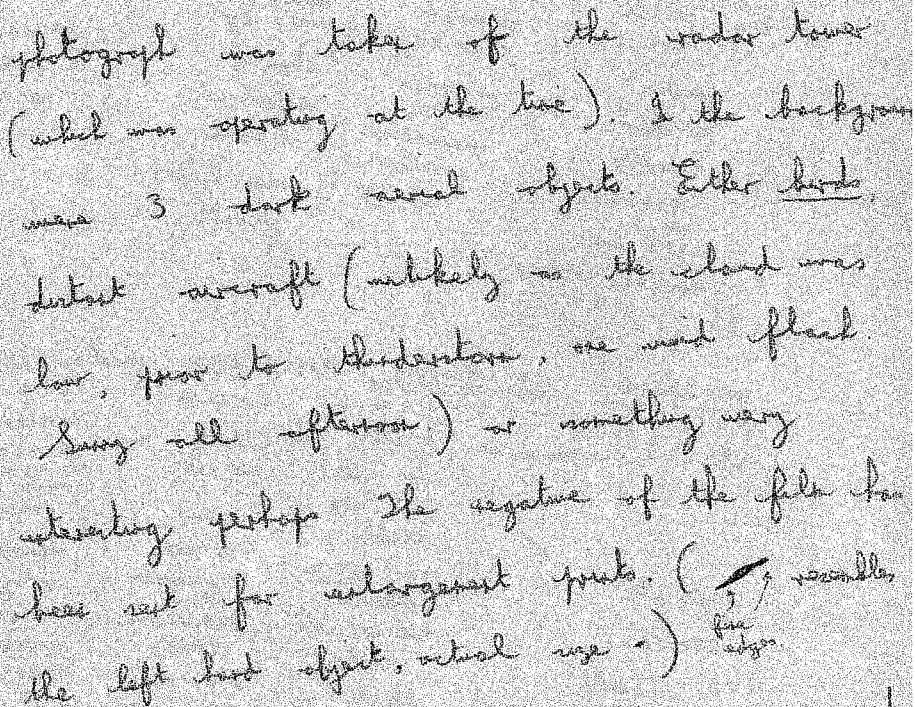 photograph was taken of the radar tower
(which was operating at the time). In the backgroun
were 3 dark aerial objects. Either birds,
distant aircraft (unlikely as the cloud was
low, prior to thunderstorm, one flash
all afternoon.) or something very
interesting perhaps The negative of the film has
been sent for enlargement prints. ( resembles
fine
edges.
the left hand object, actual size )